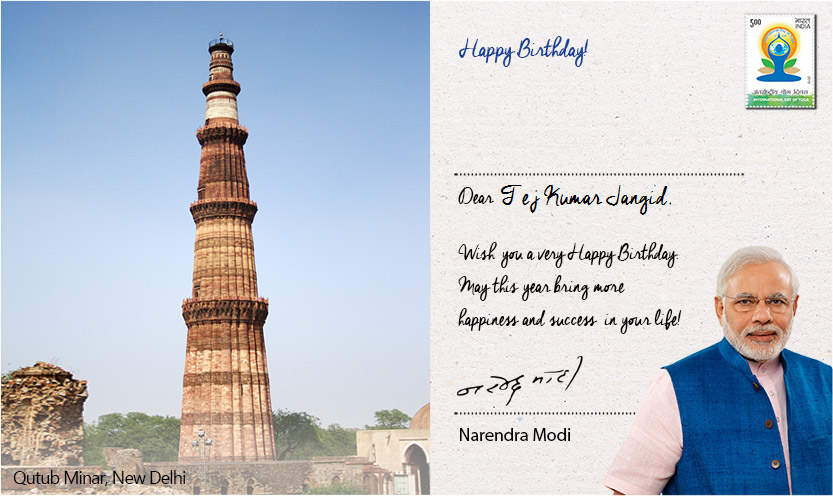 Happy Birthday!
5.00
भारत
INDIA
अंतर्राष्ट्रीय योग दिवस
INTERNATIONAL DAY OF YOGA
Dear Tej Kumar Jangid.
Wish you a very Happy Birthday.
May this year bring more
happiness and success in your life!
नरेन्द्र मोदी
Narendra Modi
Qutub Minar, New Delhi